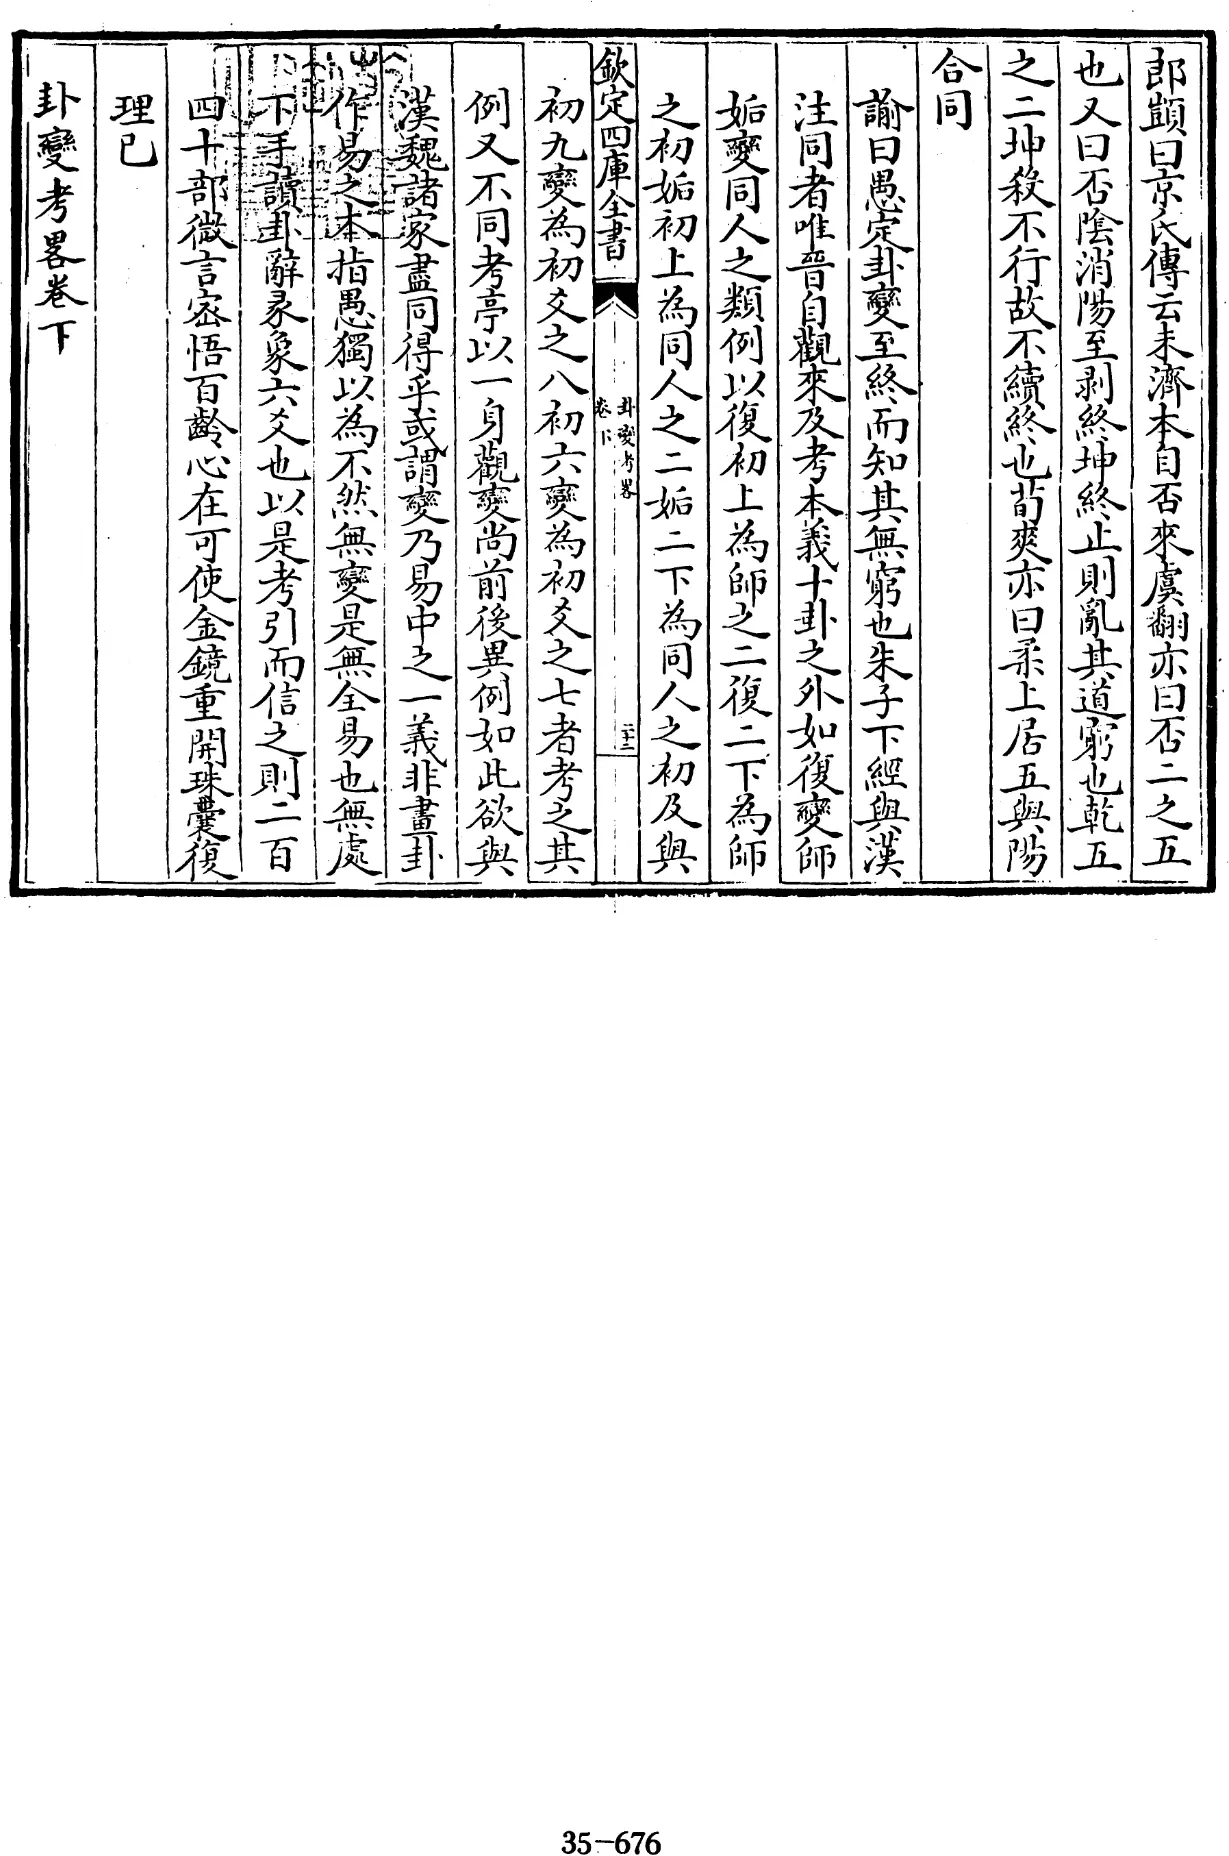 郎顗曰京氏傳云未濟本自否來虞翻亦曰否二之五
也又曰否陰消陽至剥終坤終止則亂其道窮也乾五
之二坤殺不行故不續終也荀爽亦曰柔上居五與陽
合同
諭曰愚定卦變至終而知其無窮也朱子下經與漢
注同者唯晉自觀來及考本義十卦之外如復變師
姤變同人之類例以復初上為師之二復二下為師
之初姤初上為同人之二姤二下為同人之初及與
欽定四庫全書
卦變考畧
卷下
二十三
初九變為初爻之八初六變為初爻之七者考之其
例又不同考亭以一身觀變尚前後異例如此欲與
漢魏諸家盡同得乎或謂變乃易中之一義非畫卦
作易之本指愚獨以為不然無變是無全易也無處
下手讀卦辭彖象六爻也以是考引而信之則二百
四十部微言密悟百齡心在可使金鏡重開珠囊復
理已
卦變考畧卷下
35-676